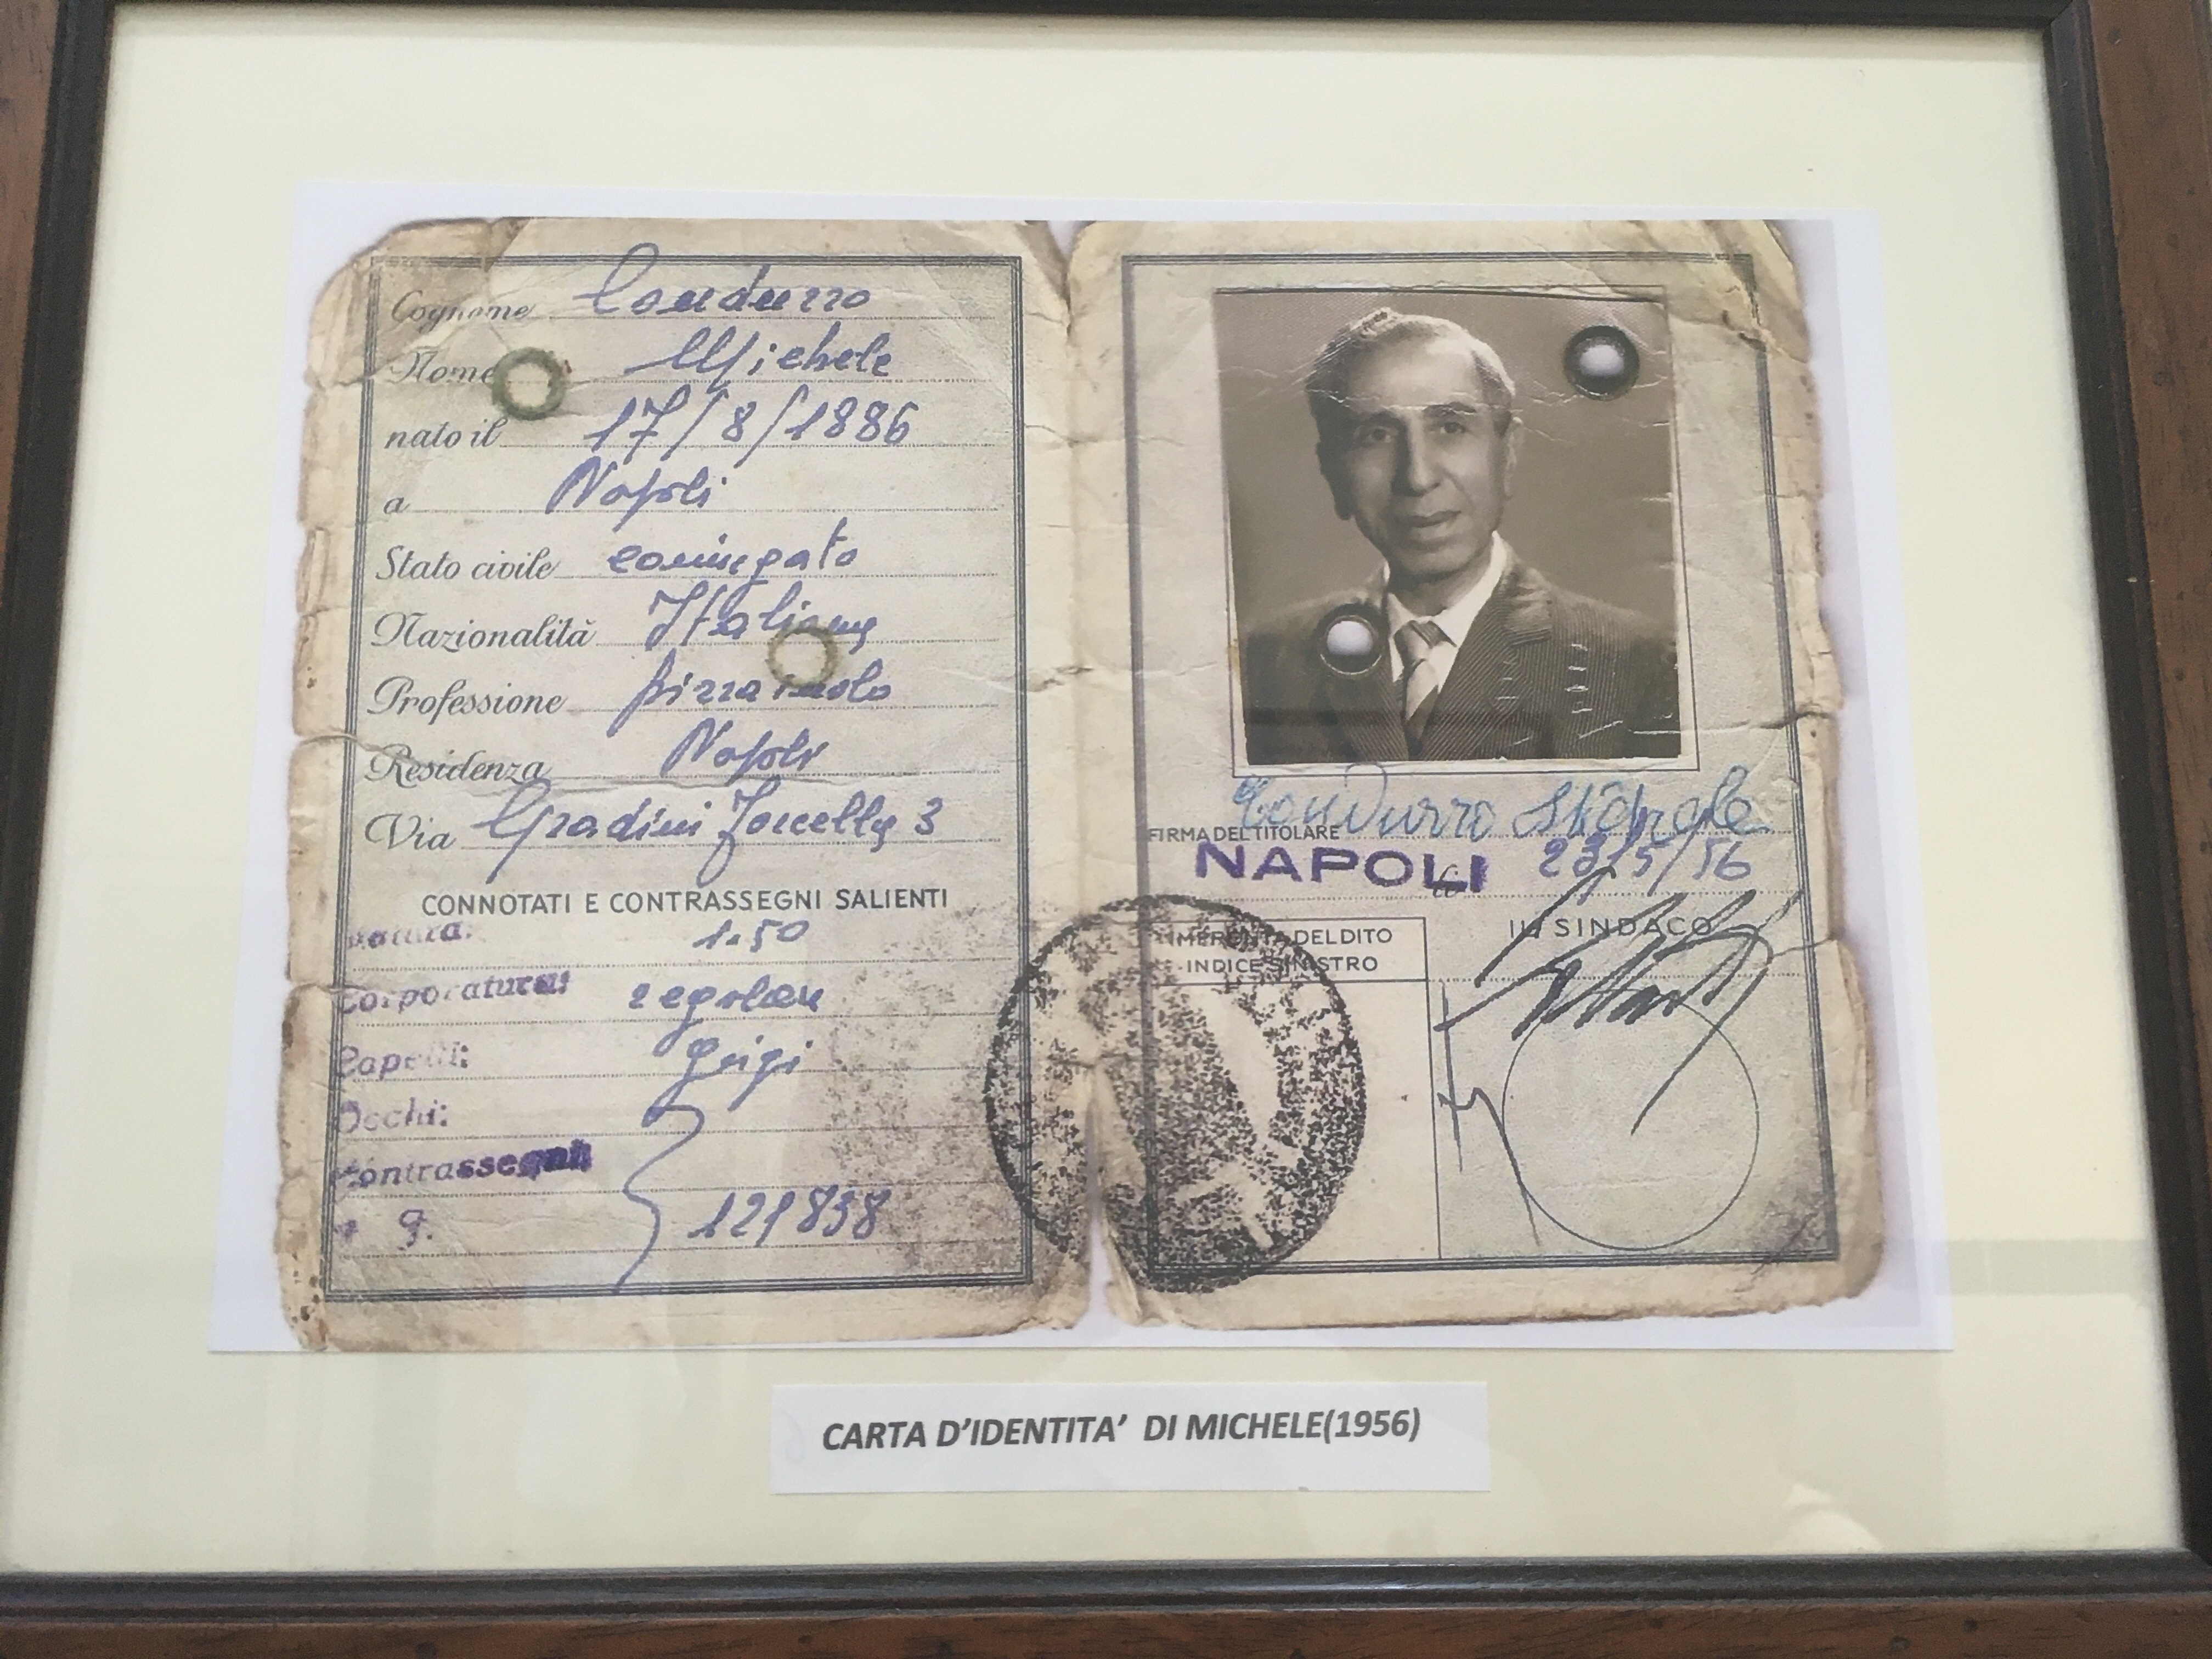 Cognome Condurro
Nome Michele
nato il 17/8/1886
a Napoli
Stato civile coniugato
Nazionalità Italiana
Professione pizzaiuolo
Residenza Napoli
Via Gradini Forcella 3
CONNOTATI E CONTRASSEGNI SALIENTI
Statura: 1.50
Corporatura: regolare
Capelli: grigi
Occhi:
Contrassegni
121838
FIRMA DEL TITOLARE Condurro Michele
NAPOLI li 23/5/56
IMPRONTA DEL DITO
INDICE SINISTRO
IL SINDACO
CARTA D'IDENTITA' DI MICHELE(1956)